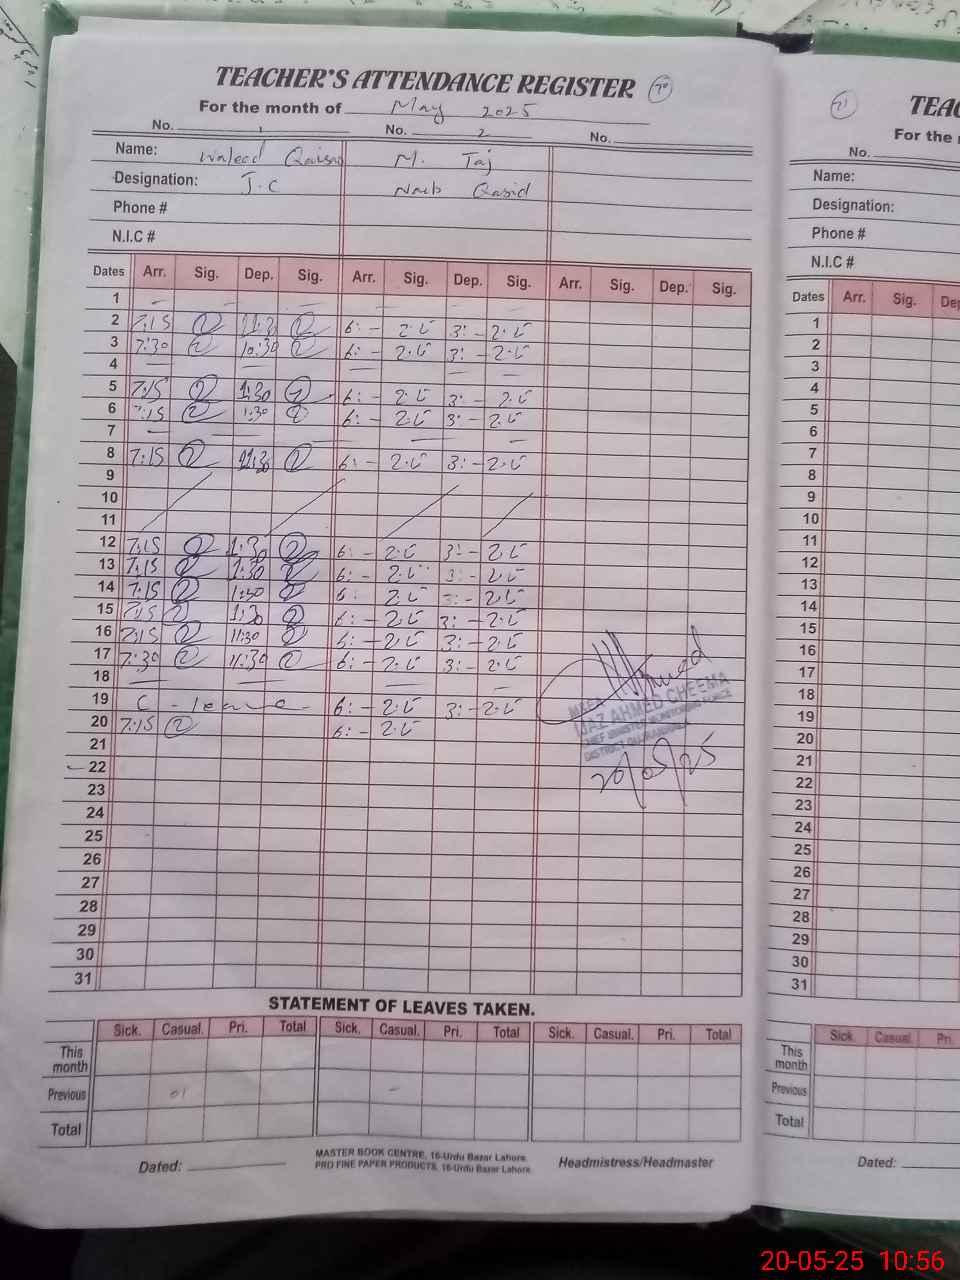 TEACHER'S ATTENDANCE REGISTER
For the month of May 2025
No. 1 No. 2 No.
Name: Waleed M. Taj
Designation: J.C Naib Qasid
Phone #
N.I.C #
Dates Arr. Sig. Dep. Sig. Arr. Sig. Dep. Sig. Arr. Sig. Dep. Sig.
1 –
2 7:15 6: – 3: –
3 7:30 10:30 6: – 3: –
4 –
5 7:15 1:30 6: – 3: –
6 7:15 1:30 6: – 3: –
7 –
8 7:15 6: – 3: –
9
10
11
12 7:15 1:30 6: – 3: –
13 7:15 1:30 6: – 3: –
14 7:15 6: – 3: –
15 7:15 1:30 6: – 3: –
16 7:15 11:30 6: – 3: –
17 7:30 11:30 6: – 3: –
18 –
19 C - leave - 6: – 3: –
20 7:15 6: –
21
22
23
24
25
26
27
28
29
30
31
IJAZ AHMED CHEEMA
CHIEF MINISTER MONITORING FORCE
DISTRICT
20/05/25
STATEMENT OF LEAVES TAKEN.
Sick. Casual. Pri. Total Sick. Casual. Pri. Total Sick. Casual. Pri. Total
This month
Previous 01 –
Total
Dated:
MASTER BOOK CENTRE, 16-Urdu Bazar Lahore.
PRO FINE PAPER PRODUCTS, 16-Urdu Bazar Lahore.
Headmistress/Headmaster
For the
No.
Name:
Designation:
Phone #
N.I.C #
Dates Arr. Sig.
1
2
3
4
5
6
7
8
9
10
11
12
13
14
15
16
17
18
19
20
21
22
23
24
25
26
27
28
29
30
31
Sick. Casual. Pri.
This month
Previous
Total
Dated:
20-05-25 10:56